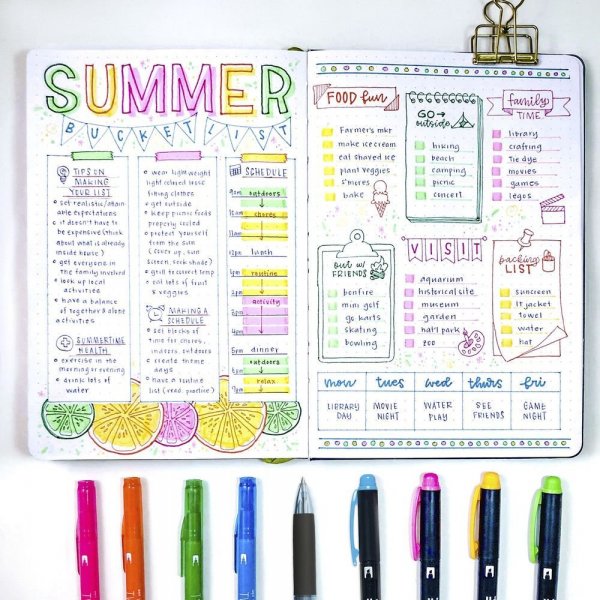 SUMMER
BUCKET LIST
TIPS ON
MAKING
YOUR LIST
set realistic/attain-
able expectations
it doesn't have to
be expensive (think
about what is already
inside house)
get everyone in
the family involved
look up local
activities
have a balance
of together & alone
activities
SUMMERTIME
HEALTH
exercise in the
morning or evening
drink lots of
water
wear light weight
light colored loose
fitting clothes
get outside
keep picnic foods
properly cooled
protect yourself
from the sun
(cover up, sun
screen, seek shade)
grill to correct temp
eat lots of fruit
& veggies
MAKING A
SCHEDULE
set blocks of
time for chores,
indoors, outdoors
create theme
days
have a routine
list (read, practice)
SCHEDULE
9am outdoors
10am chores
11am
12pm lunch
1pm routine
2pm
3pm activity
4pm
5pm dinner
outdoors
relax
FOOD fun
Farmer's mkt
make ice cream
eat shaved ice
plant veggies
s'mores
bake
GO
outside
hiking
beach
camping
picnic
concert
family
TIME
library
crafting
tie dye
movies
games
legos
out w/
FRIENDS
bonfire
mini golf
go karts
skating
bowling
VISIT
aquarium
historical site
museum
garden
nat'l park
zoo
packing
LIST
sunscreen
lt jacket
towel
water
hat
mon tues wed thurs fri
LIBRARY DAY
MOVIE NIGHT
WATER PLAY
SEE FRIENDS
GAME NIGHT